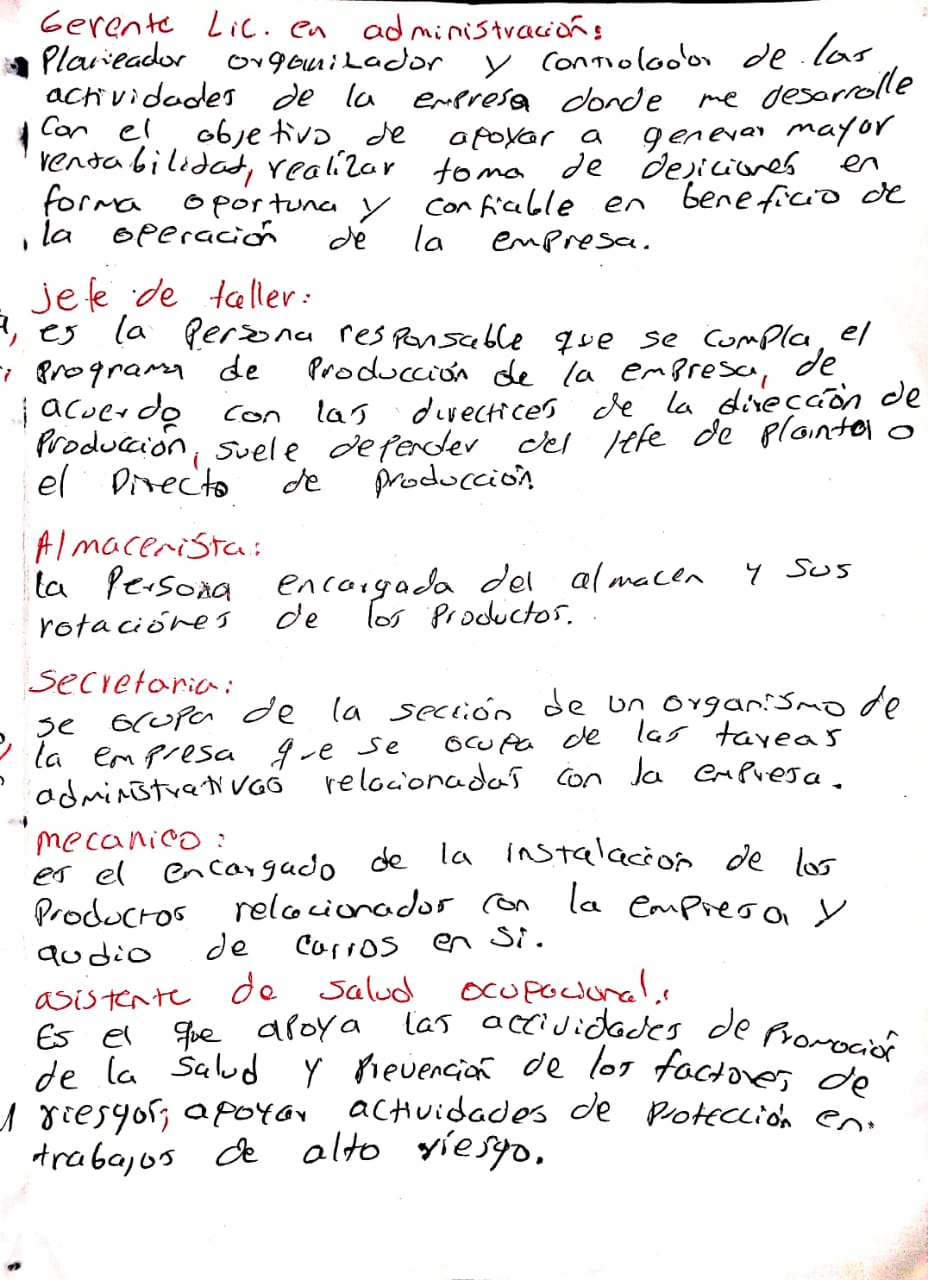 Gerente Lic. en administración:
Planeador organizador y controlador de las
actividades de la empresa donde me desarrolle
Con el objetivo de apoyar a generar mayor
rentabilidad, realizar toma de desiciones en
forma oportuna y confiable en beneficio de
la operación de la empresa.
Jefe de taller:
es la Persona responsable que se cumpla, el
Programa de Producción de la empresa, de
acuerdo con las directices de la dirección de
Producción, suele depender del Jefe de planta o
el Directo de producción
Almacenista:
la Persona encargada del almacen y sus
rotaciónes de los Productos.
Secretaria:
se ocupa de la sección de un organismo de
la empresa que se ocupa de las tareas
administrativas relacionadas con la empresa.
mecanico:
es el encargado de la instalación de los
Productos relacionador con la empresa y
audio de carros en si.
asistente de salud ocupacional:
Es el que apoya las actividades de Promoción
de la Salud y Prevención de los factores de
riesgos; apoyar actividades de Protección en.
trabajos de alto riesgo.